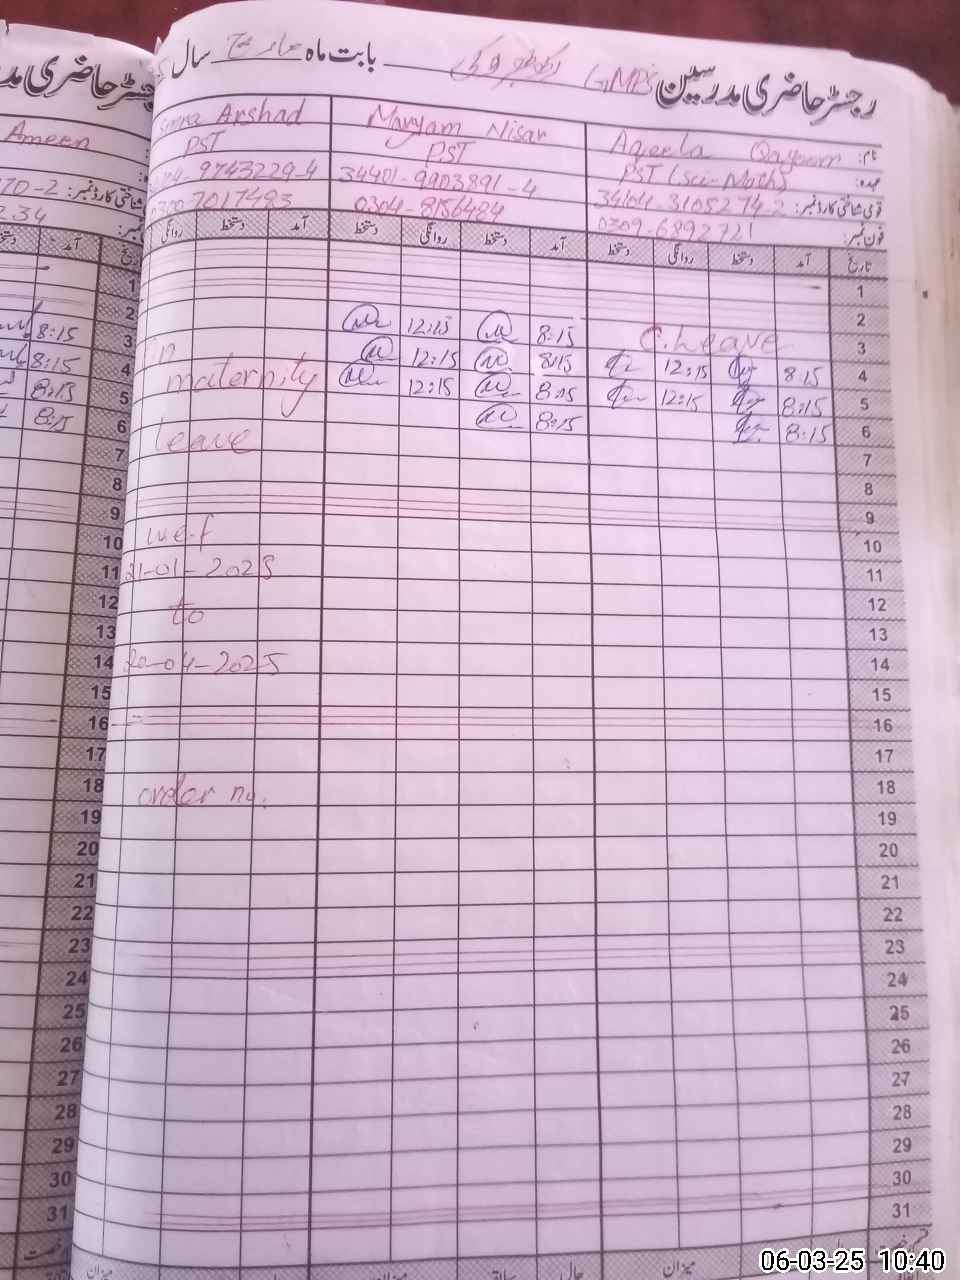 رجسٹر حاضری مدرسین GMPS بابت ماہ مارچ سال
نام: Aqeela Qayoom Maryam Nisar Arshad
عہدہ: PST (Sci-Math) PST PST
قومی شناختی کارڈ نمبر: 34104-3105274-2 34401-9903891-4 9743229-4
فون نمبر: 0309-6892721 0304-8156484 0300-7017493
تاریخ آمد دستخط روانگی دستخط آمد دستخط روانگی دستخط آمد دستخط روانگی
1
2
3 C.Leave 8:15 12:15
4 8:15 12:15 8:15 12:15
5 8:15 12:15 8:15 12:15
6 8:15 8:15
7
8
9
10
11
12
13
14
15
16
17
18
19
20
21
22
23
24
25
26
27
28
29
30
31
in
maternity
leave
w.e.f
21-01-2025
to
20-04-2025
order no.
میزان
رجسٹر حاضری
Ameen
شناختی کارڈ نمبر: 70-2
234
تاریخ آمد
1
2
3 8:15
4 8:15
5 8:15
6 8:15
7
8
9
10
11
12
13
14
15
16
17
18
19
20
21
22
23
24
25
26
27
28
29
30
31
06-03-25 10:40